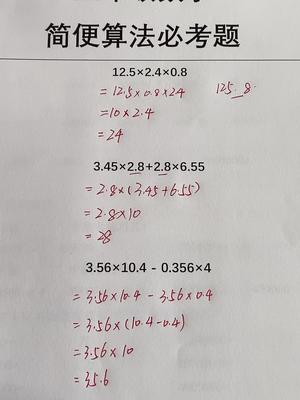 简便算法必考题
12.5×2.4×0.8
= 12.5×0.8×24
125 8
=10×2.4
= 24
3.45×2.8+2.8×6.55
= 2.8×(3.45+6.55)
= 2.8×10
= 28
3.56×10.4 - 0.356×4
= 3.56×10.4 - 3.56×0.4
= 3.56×(10.4-0.4)
= 3.56×10
= 35.6